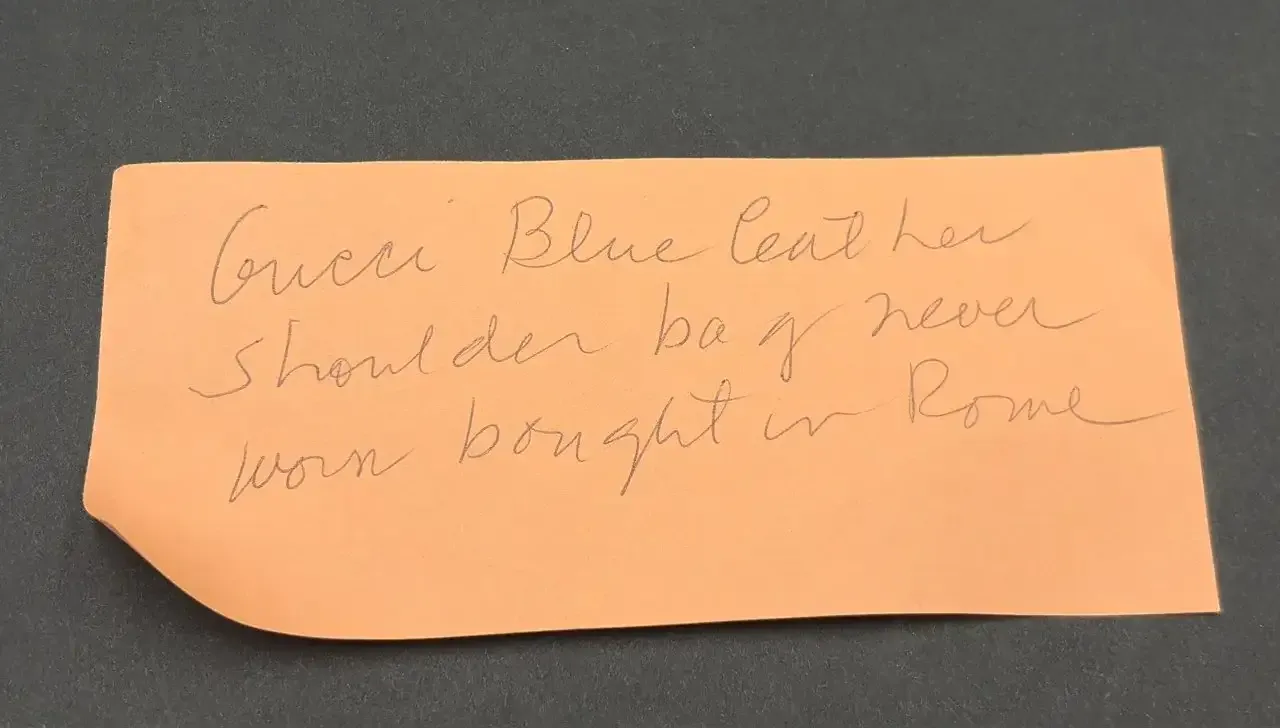 Gucci Blue leather
shoulder bag never
worn bought in Rome